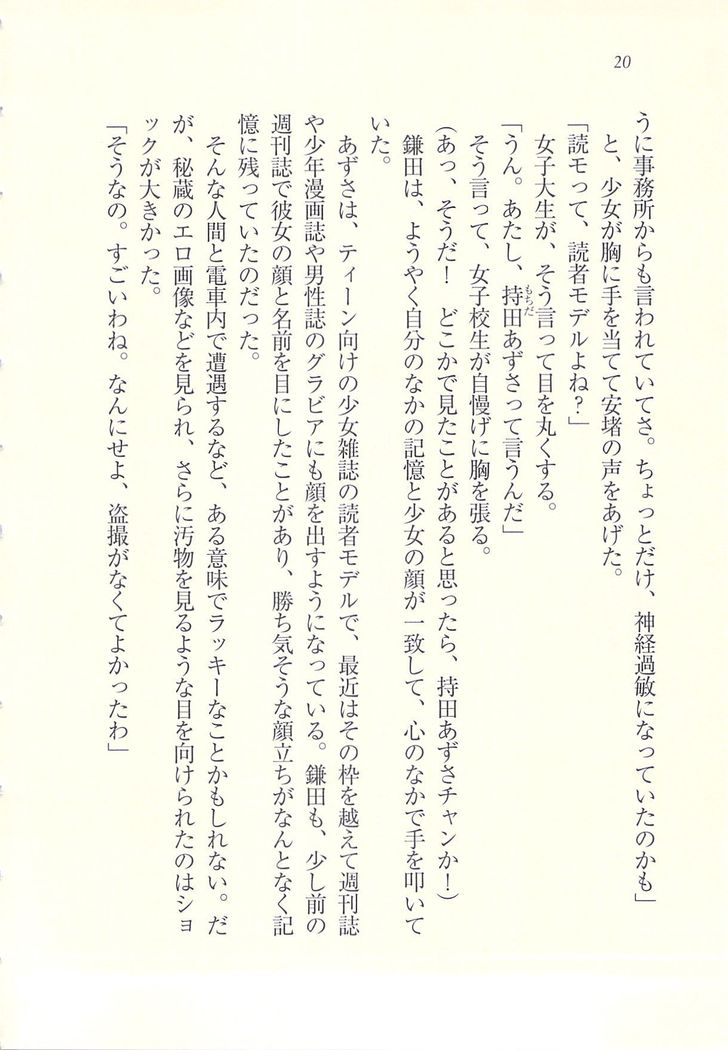 20
うに事務所からも言われていてさ。ちょっとだけ、神経過敏になっていたのかも」
と、少女が胸に手を当てて安堵の声をあげた。
「読モって、読者モデルよね？」
女子大生が、そう言って目を丸くする。
「うん。あたし、持田あずさって言うんだ」
もちだ
そう言って、女子校生が自慢げに胸を張る。
（あっ、そうだ！　どこかで見たことがあると思ったら、持田あずさチャンか！）
鎌田は、ようやく自分のなかの記憶と少女の顔が一致して、心のなかで手を叩いて
いた。
あずさは、ティーン向けの少女雑誌の読者モデルで、最近はその枠を越えて週刊誌
や少年漫画誌や男性誌のグラビアにも顔を出すようになっている。鎌田も、少し前の
週刊誌で彼女の顔と名前を目にしたことがあり、勝ち気そうな顔立ちがなんとなく記
憶に残っていたのだった。
そんな人間と電車内で遭遇するなど、ある意味でラッキーなことかもしれない。だ
が、秘蔵のエロ画像などを見られ、さらに汚物を見るような目を向けられたのはショ
ックが大きかった。
「そうなの。すごいわね。なんにせよ、盗撮がなくてよかったわ」